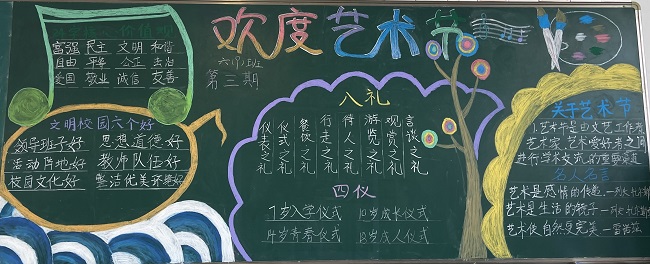 欢度艺术节
六(1)班
第三期
心价值
富强 民主 文明 和谐
自由 平等 公正 法治
爱国 敬业 诚信 友善
文明校园六个好
领导班子好 思想道德好
活动阵地好 教师队伍好
校园文化好 整洁优美环境好
八礼
仪表之礼
仪式之礼
餐饮之礼
行走之礼
待人之礼
游览之礼
观赏之礼
言谈之礼
四仪
7岁入学仪式 10岁成长仪式
14岁青春仪式 18岁成人仪式
关于艺术节
1.艺术节是由文艺工作者
艺术家、艺术爱好者之间
进行学术交流的重要渠道
名人名言
艺术是感情的传递
艺术是生活的镜子
艺术使自然更完美